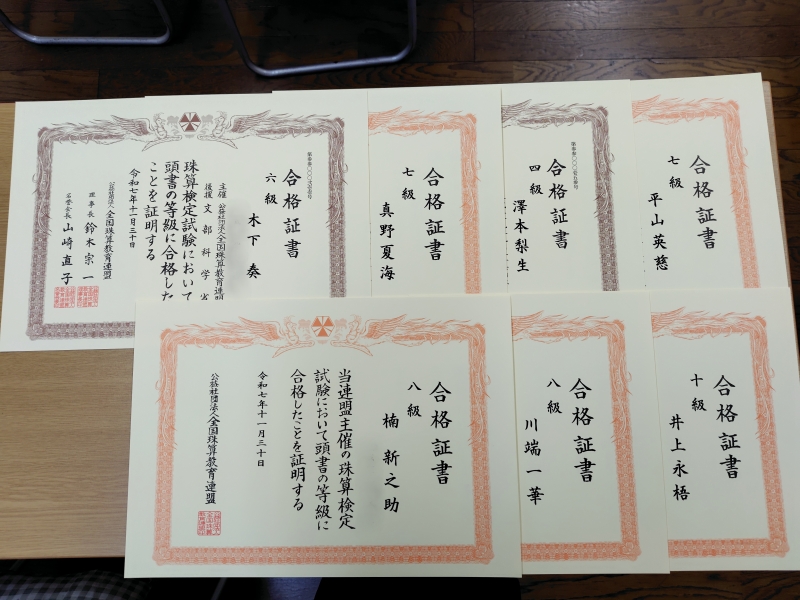 合格証書
六級
木下 奏
主催 公益社団法人全国珠算教育連盟
後援 文部科学省
珠算検定試験において
頭書の等級に合格した
ことを証明する
令和七年十一月三十日
公益社団法人全国珠算教育連盟
理事長 鈴木宗一
名誉会長 山崎直子
合格証書
七級
真野夏海
合格証書
四級
澤本梨生
合格証書
七級
平山英慈
合格証書
八級
楠 新之助
当連盟主催の珠算検定
試験において頭書の等級に
合格したことを証明する
令和七年十一月三十日
公益社団法人全国珠算教育連盟
合格証書
八級
川端一華
合格証書
十級
井上永梧